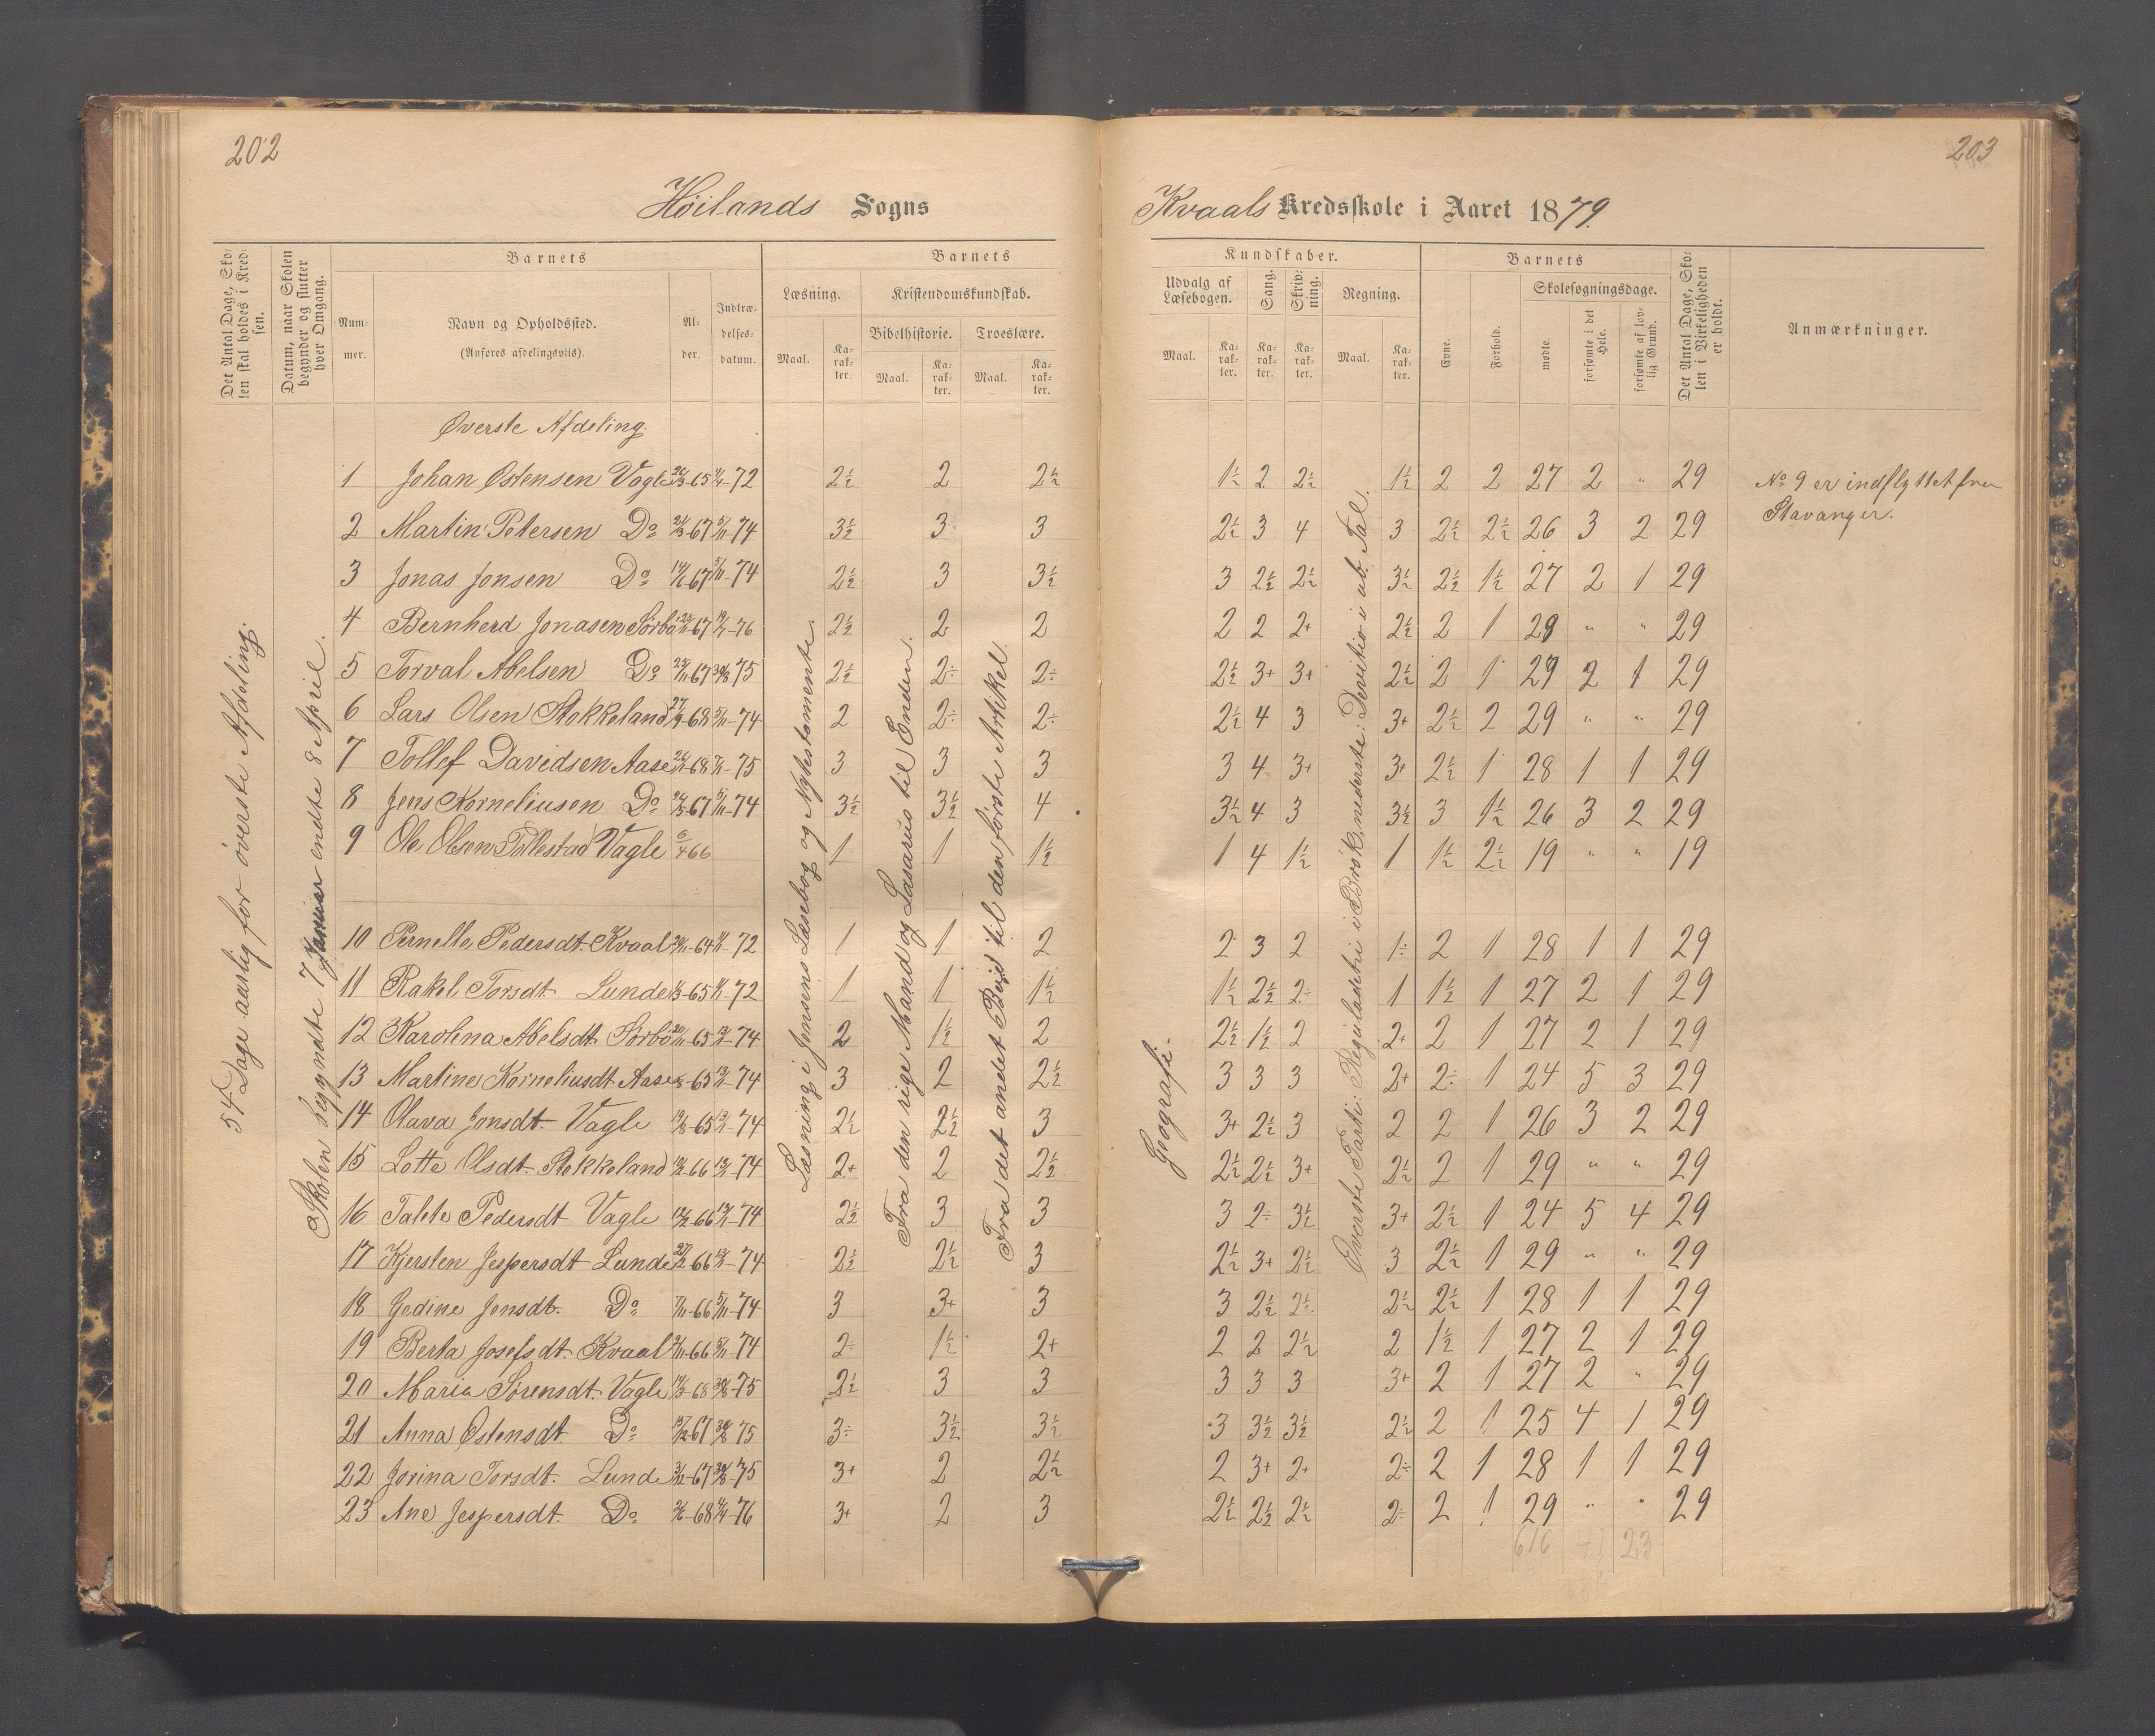 202
203
Høilands Sogns
Kvaals Kredsskole i Aaret 1879.
Det Antal Dage, Skolen skal holdes i Kredsen.
Datum, naar Skolen begynder og slutter hver Omgang.
Barnets
Nummer.
Navn og Opholdssted.
(Anføres afdelingsviis).
Alder.
Indtrædelsesdatum.
Barnets
Læsning.
Maal.
Karakter.
Kristendomskundskab.
Bibelhistorie.
Troeslære.
Maal.
Karakter.
Maal.
Karakter.
Kundskaber.
Udvalg af Læsebogen.
Sang.
Skrivning.
Regning.
Maal.
Karakter.
Karakter.
Karakter.
Maal.
Karakter.
Barnets
Evne.
Forhold.
Skolesøgningsdage.
mødte.
forsømte i det Hele.
forsømte af lovlig Grund.
Det Antal Dage, Skolen i Virkeligheden er holdt.
Anmærkninger.
54 Dage aarlig for överste Afdeling.
Skolen begyndte 7 Januar endte 8 April.
Læsning i Jensens Læsebog og Nytestamente.
Fra den rige Mand og Lasarus til Enden.
Fra det andet Bud til den første Artikel.
Geografi.
Øverste Parti: Reguladetri i Brök, nederste: Devitio i ub. Tal.
Øverste Afdeling.
1 Johan Østensen Vagle 65 72 2½ 2 2½ 1½ 2 2½ 1½ 2 2 27 2 " 29 No 9 er indflyttet fra
2 Martin Petersen Do 67 5/11-74 3½ 3 3 2½ 3 4 3 2½ 2½ 26 3 2 29 Stavanger.
3 Jonas Jonsen Do 67 5/11-74 2½ 3 3½ 3 2½ 2½ 3½ 2½ 1½ 27 2 1 29
4 Bernherd Jonasen Sørbø 67 76 2½ 2 2 2 2 2+ 2½ 2 1 29 " " 29
5 Torval Abelsen Do 67 75 2½ 2÷ 2÷ 2½ 3+ 3+ 2½ 2 1 27 2 1 29
6 Lars Olsen Stokkeland 68 5/11-74 2 2÷ 2÷ 2½ 4 3 3+ 2½ 2 29 " " 29
7 Tollef Davidsen Aase 68 75 3 3 3 3 4 3+ 3+ 2½ 1 28 1 1 29
8 Jens Korneliusen Do 67 5/11-74 3½ 3½ 4 3½ 4 3 3½ 3 1½ 26 3 2 29
9 Ole Olsen Tollestad Vagle 6/4 66 1 1 1½ 1 4 1½ 1 1½ 2½ 19 " " 19
10 Pernelle Pedersdt. Kvaal 64 72 1 1 2 2 3 2 1÷ 2 1 28 1 1 29
11 Rakel Torsdt. Lunde 65 72 1 1 1½ 1½ 2½ 2÷ 1 1½ 1 27 2 1 29
12 Karolina Abelsdt. Sørbø 65 74 2 1½ 2 2½ 1½ 2 2+ 2 1 27 2 1 29
13 Martine Korneliusdt Aase 65 74 3 2 2½ 3 3 3 2+ 2÷ 1 24 5 3 29
14 Olava Jonsdt. Vagle 65 74 2½ 2½ 3 3+ 2½ 3 2 2 1 26 3 2 29
15 Lotte Olsdt. Stokkeland 66 74 2+ 2 2½ 2½ 2½ 3+ 2½ 2 1 29 " " 29
16 Talete Pedersdt Vagle 66 74 2½ 3 3 3 2÷ 3½ 3+ 2½ 1 24 5 4 29
17 Kjersten Jespersdt Lunde 66 74 2½ 2½ 3 2½ 3+ 2½ 3 2½ 1 29 " " 29
18 Gedine Jonsdt. Do 66 5/11-74 3 3+ 3 3 2½ 2½ 2½ 2½ 1 28 1 1 29
19 Berta Josefsdt. Kvaal 66 5/11-74 2÷ 1½ 2+ 2 2 2½ 2 1½ 1 27 2 1 29
20 Maria Sørensdt. Vagle 68 75 2½ 3 3 3 3 3 3+ 2 1 27 2 " 29
21 Anna Østensdt. Do 67 75 3÷ 3½ 3½ 3 3½ 3½ 2½ 2 1 25 4 1 29
22 Jorina Torsdt. Lunde 67 75 3+ 2 2½ 2 3+ 2+ 2÷ 2 1 28 1 1 29
23 Ane Jespersdt. Do 68 76 3+ 2 3 2½ 2½ 2½ 2÷ 2 1 29 " " 29
616 41 23